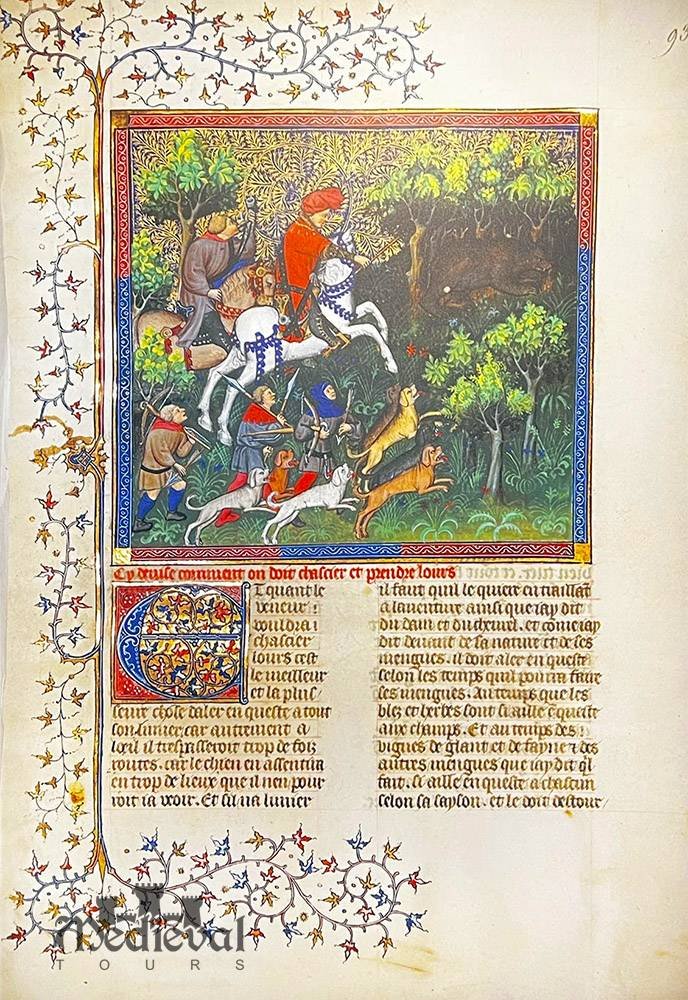 93
Cy deuise comment on doit chascier et prendre lours
Et quant le
veneur
vouldra
chascier
lours cest
le meilleur
et la plus
seure chose daler en queste a tout
son limier, car autrement a
loeil il trespasseroit trop de foiz
routes. car le chien en assentira
en trop de lieux que il nen pour
roit ia veoir. Et sil na limier
il faut quil le quiere en traillant
a lauenture ainsi que iay dit
du dain et du cheurel. et come iay
dit deuant de sa nature et de ses
mengues. il doit aler en queste
selon les temps quil pourra faire
ses mengues. Au temps que les
blez et herbes sont si aille en queste
aux champs. Et au temps des
vignes de glant et de fayne et des
autres mengues que iay dit ql
fait. si aille en queste a chascun
selon sa sayson. et le doit destour
Medieval
TOURS